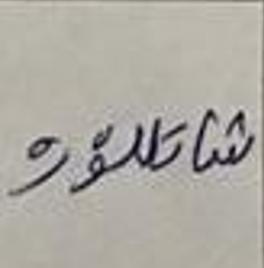 شاتللۇق